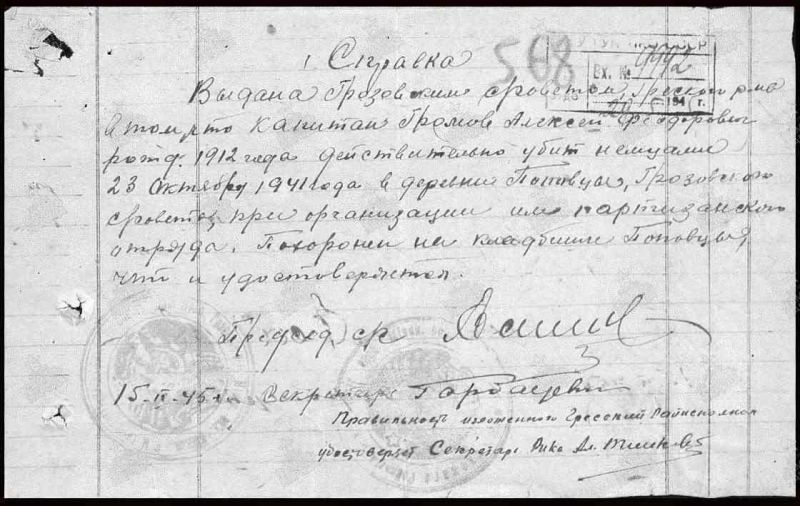 Справка
568
Вх. № 9992
194 г.
Выдана Грозовским с/советом, Гресского р-на
в том, что капитан Громов Алексей Феодорович
рожд. 1912 года действительно убит немцами
23 октября 1941 года в деревни Поповцы, Грозовского
с/совета, при организации им партизанского
отряда. Похоронен на кладбище Поповцы,
что и удостоверяется.
Председ. с/с
15-II-45 г. Секретарь Горбацевич
Правильность изложенного Гресский Райисполком
удостоверяет Секретарь Рика